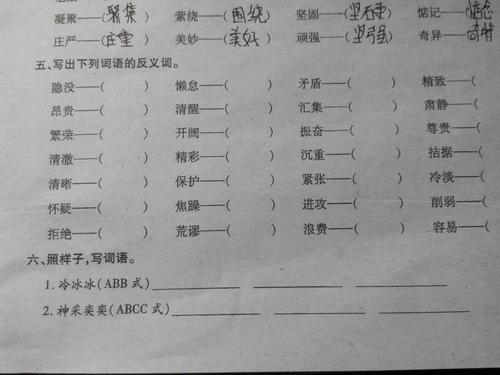 凝聚——(聚集) 萦绕——(围绕) 坚固——(坚硬) 惦记——(惦念
庄严——(庄重) 美妙——(美好) 顽强——(坚强) 奇异——(奇特
五、写出下列词语的反义词。
隐没——( ) 懒怠——( ) 矛盾——( ) 精致——(
昂贵——( ) 清醒——( ) 汇集——( ) 肃静——(
繁荣——( ) 开阔——( ) 振奋——( ) 尊贵——(
清澈——( ) 精彩——( ) 沉重——( ) 拮据——(
清晰——( ) 保护——( ) 紧张——( ) 冷淡——(
怀疑——( ) 焦躁——( ) 进攻——( ) 削弱——(
拒绝——( ) 荒谬——( ) 浪费——( ) 容易——(
六、照样子,写词语。
1. 冷冰冰(ABB 式)
2. 神采奕奕(ABCC 式)